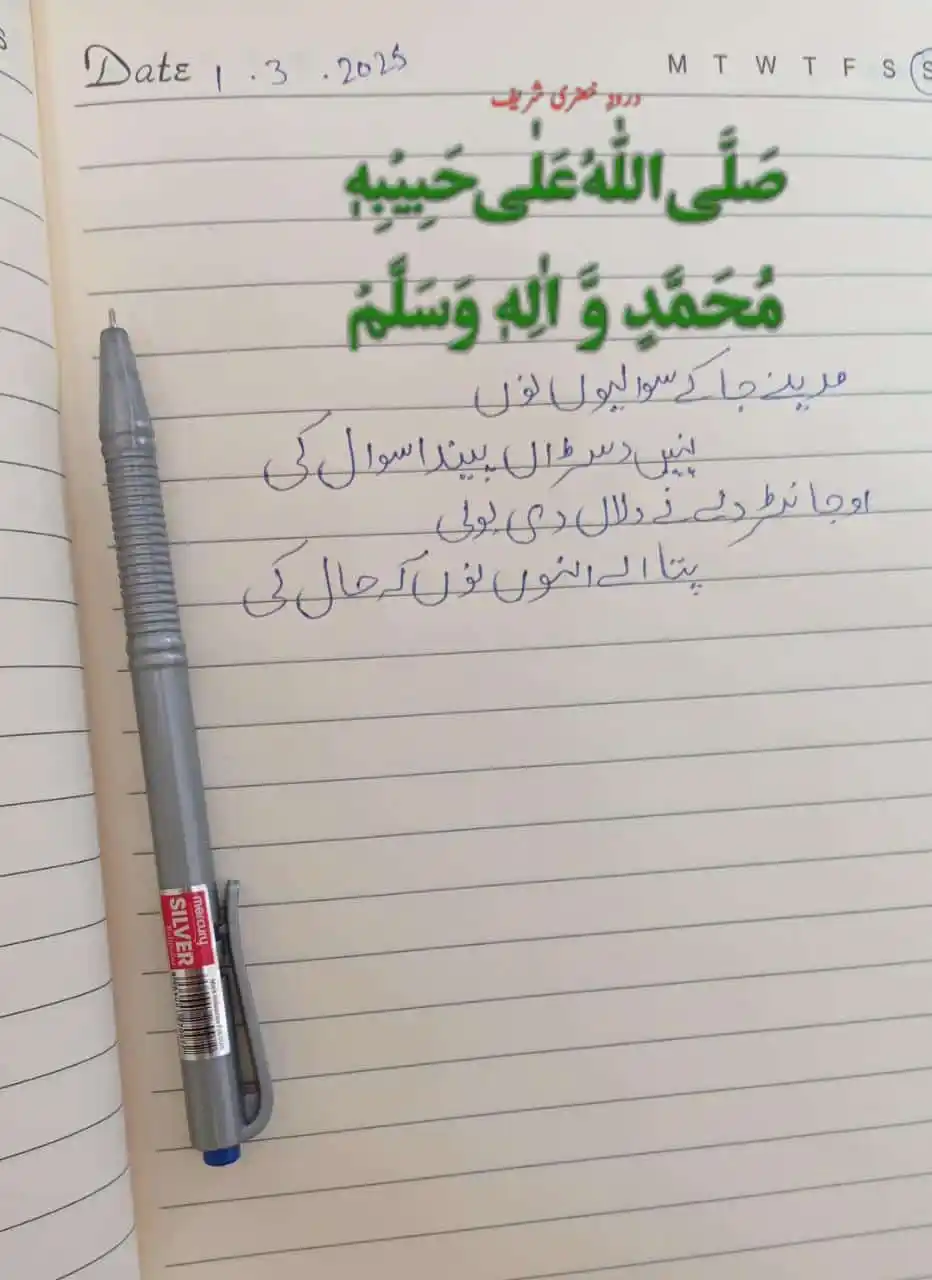 Date 1.3.2025
M T W T F S S
درود خضری شریف
صَلَّی اللّٰہُ عَلٰی حَبِیْبِہٖ
مُحَمَّدٍ وَّ اٰلِہٖ وَسَلَّمْ
مدینے جا کے سوالیوں نوں
نہیں دسڑاں پیندا سوال کی
او جانڑدے نے دلاں دی بولی
پتا اے انہوں نوں کہ حال کی
mercury
SILVER